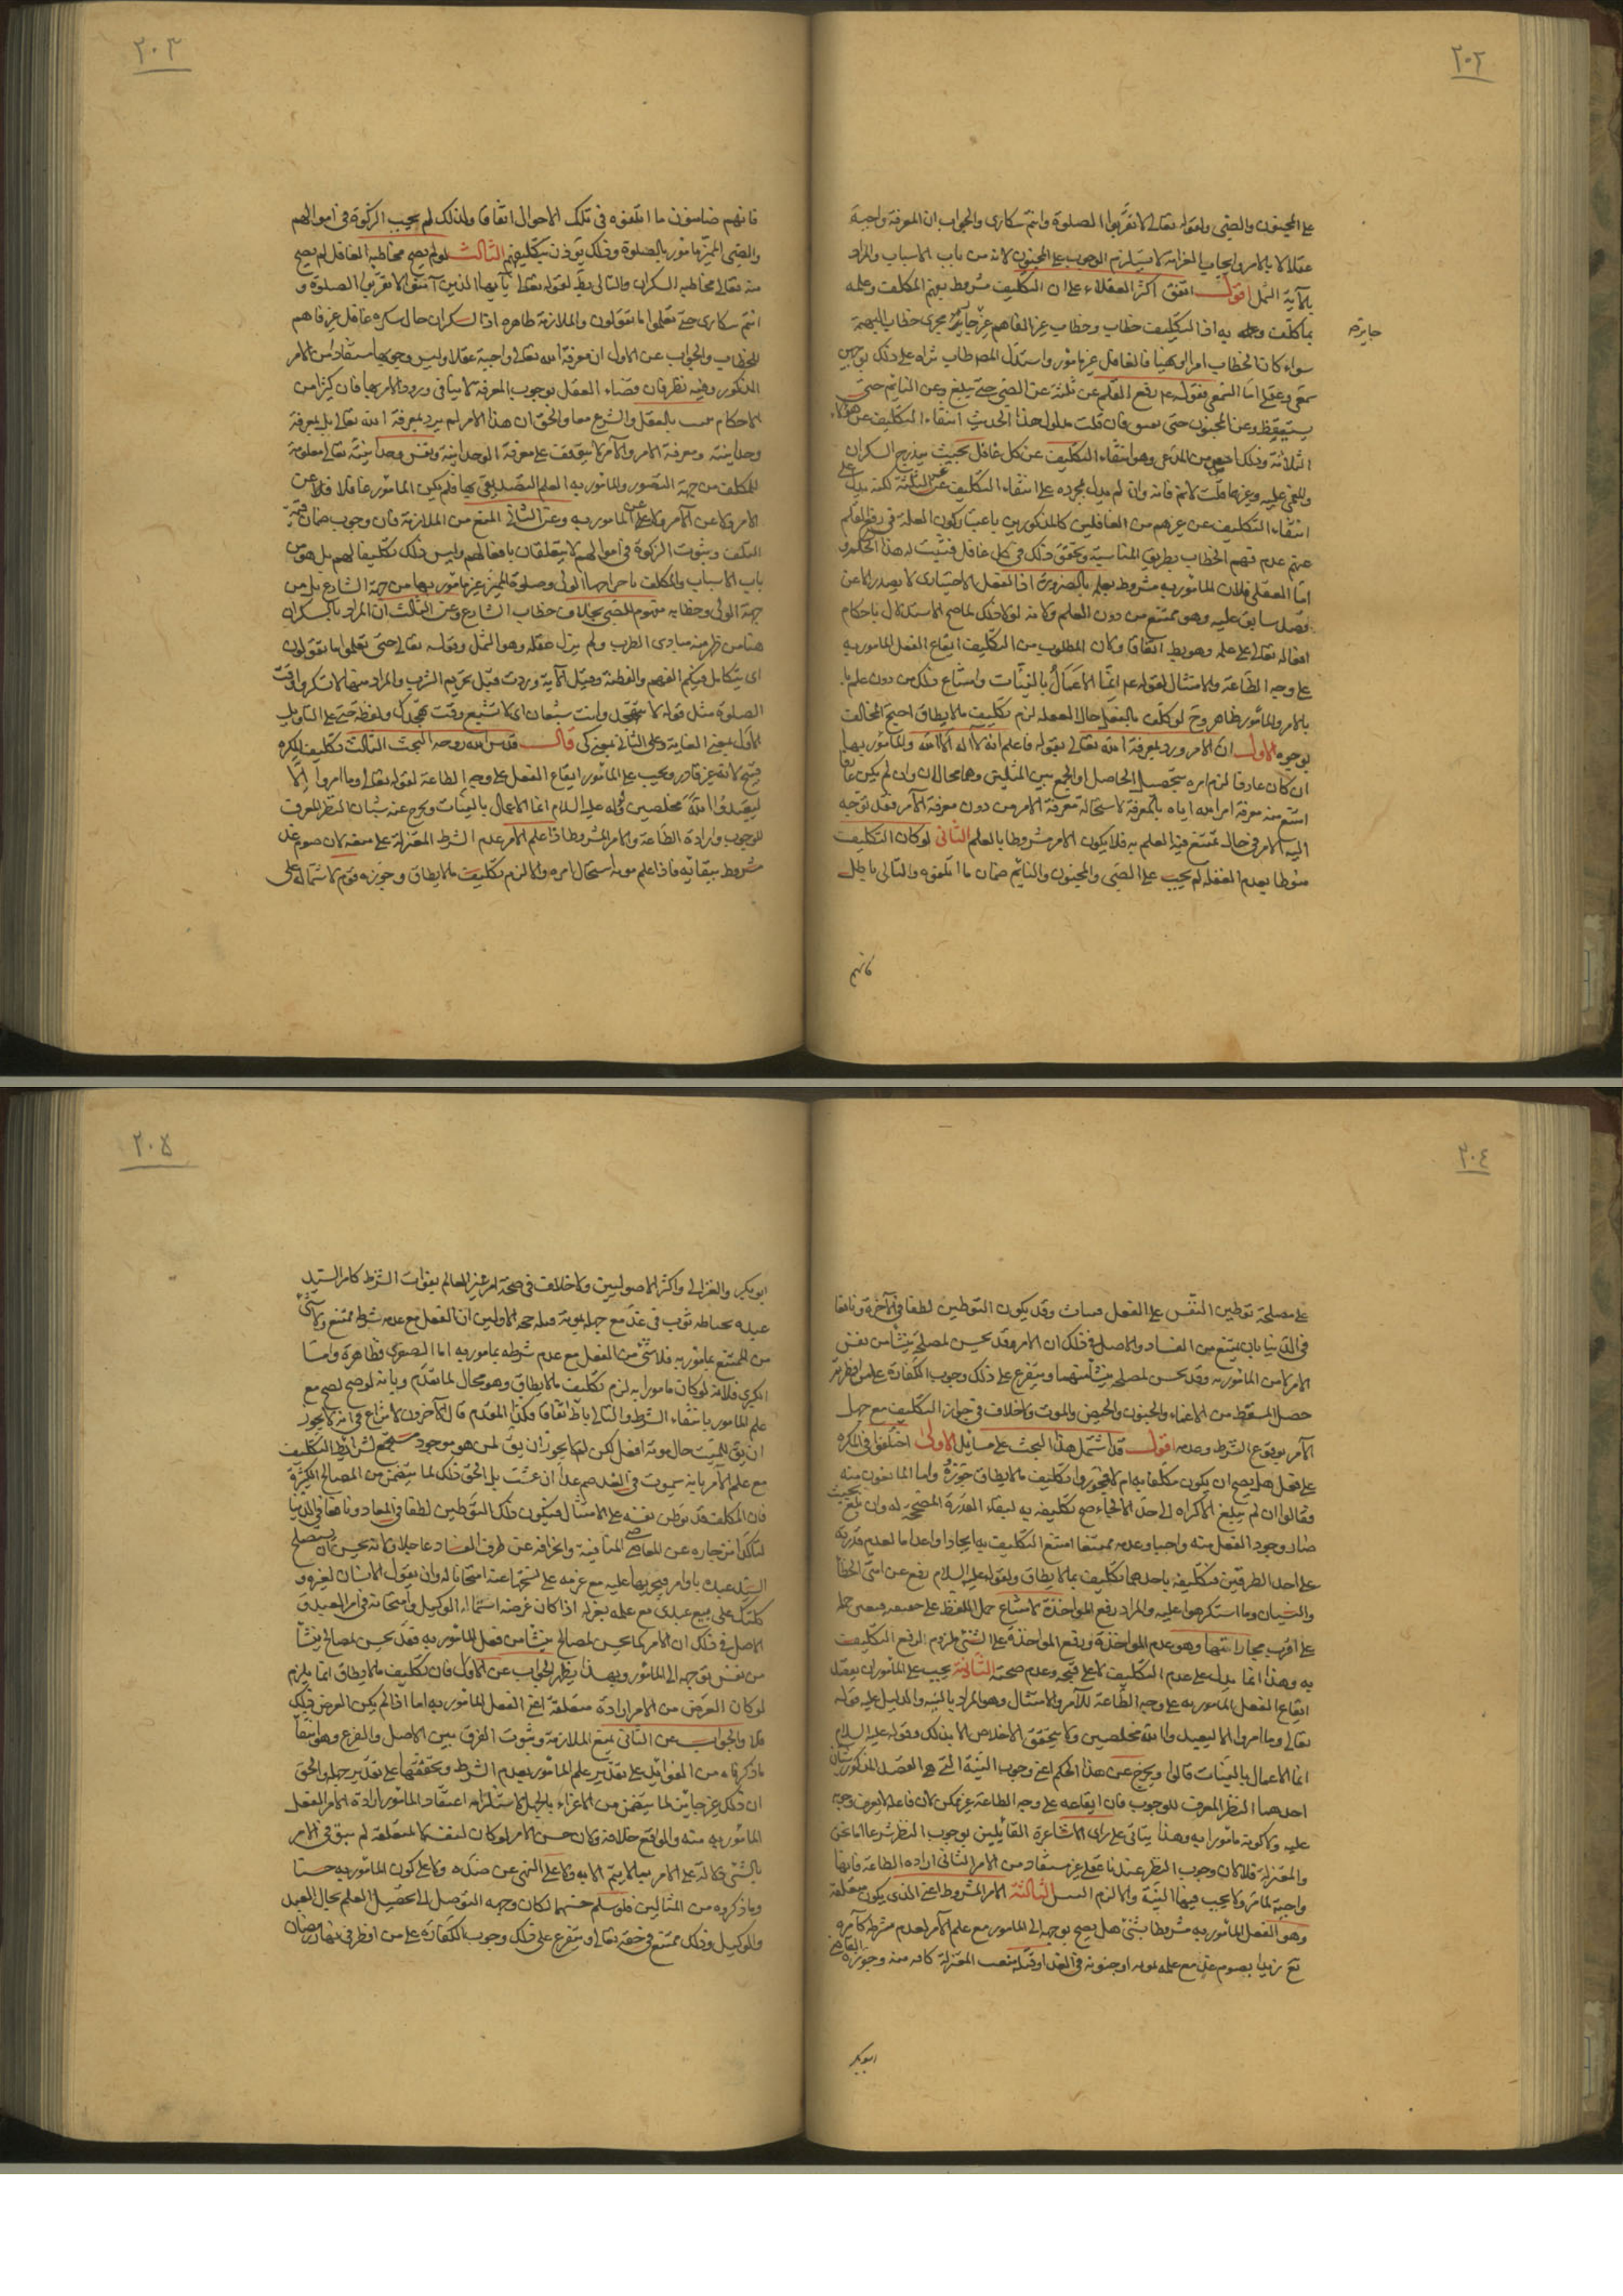 ٢٠٢
على المجنون والصبي ولقوله تعالى لا تقربوا الصلوة وانتم سكارى والجواب ان المعرفة واجبة
عقلا لا بالامر وايجاب الغرامة لا يستلزم الوجوب على المجنون لانه من باب الاسباب والمراد
بالآية الثمل اقول اتفق اكثر العقلاء على ان التكليف مشروط بفهم المكلف وعلمه
بما كلف به اذ التكليف خطاب وخطاب غير الفاهم غير جايز مجرى خطاب البهيمة
جايز
سواء كان الخطاب امرا او نهيا فالغافل غير مامور واستدل المص طاب ثراه على ذلك بوجهين
سمعي وعقلي اما السمعي فقوله رفع القلم عن ثلثة عن الصبي حتى يبلغ وعن النايم حتى
يستيقظ وعن المجنون حتى يفيق فان قلت مدلول هذا الحديث انتفاء التكليف عن هؤلاء
الثلاثة وذلك اخص من المدعى وهو انتفاء التكليف عن كل غافل بحيث يندرج السكران
والمغمى عليه وغيرهما قلت لا نم فانه وان لم يدل بمجرده على انتفاء التكليف عن غير الثلثة لكنه يدل على
انتفاء التكليف عن غيرهم من الغافلين كالمذكورين باعتبار كون العلة في رفع القلم
عنهم عدم فهم الخطاب بطريق المناسبة وتحقق ذلك في كل غافل فيثبت له هذا الحكم و
اما العقلي فلان المامور به مشروط بعلم بالضرورة اذ الفعل الاختياري لا يصدر الا عن
قصد سابق عليه وهو ممتنع من دون العلم ولانه لولا ذلك لما صح الاستدلال باحكام
افعاله تعالى على علمه وهو بط اتفاقا ولان المطلوب من التكليف ايقاع الفعل المامور به
على وجه الطاعة والامتثال لقوله انما الاعمال بالنيات وامتناع ذلك من دون علمه
بالامر والمامور ظاهر وح لو كلف بالفعل حال الغفلة لزم تكليف ما لا يطاق احتج المخالف
بوجوه الاول ان الامر ورد بمعرفة الله تعالى بقوله فاعلم انه لا اله الا الله والمامور بها
ان كان عارفا لزم امره بتحصيل الحاصل او الجمع بين المثلين وهما محالان وان لم يكن عارفا
امتنع منه معرفة امر الله اياه بالمعرفة لاستحالة معرفة الامر من دون معرفة الآمر فقد توجه
اليه الامر في حال يمتنع فيه العلم به فلا يكون الامر مشروطا بالعلم الثاني لو كان التكليف
منوطا بعدم الغفلة لم يجب على الصبي والمجنون والنايم ضمان ما اتلفوه والتالي باطل
فانهم
٢٠٣
فانهم ضامنون ما اتلفوه في تلك الاحوال اتفاقا ولذلك لم يجب الزكوة في اموالهم
والصبي المميز مامور بالصلوة وذلك يوذن بتكليفهم الثالث لو لم يصح مخاطبة الغافل لم يصح
منه تعالى مخاطبة السكران والتالي بط لقوله تعالى يا ايها الذين آمنوا لا تقربوا الصلوة و
انتم سكارى حتى تعلموا ما تقولون والملازمة ظاهرة اذ السكران حال سكره غافل غير فاهم
للخطاب والجواب عن الاول ان معرفة الله تعالى واجبة عقلا وليس وجوبها مستفاد من الامر
المذكور وفيه نظر فان قضاء العقل بوجوب المعرفة لا ينافي ورود الامر بها فان كثيرا من
الاحكام بالعقل والشرع معا والحق ان هذا الامر لم يرد بمعرفة الله تعالى بل بمعرفة
وحدانيته ومعرفة الامر والآمر لا يتوقف على معرفة الوحدانية ونفس وحدانيته تعالى معلومة
للمكلف من جهة التصور والمامور به العلم التصديقي بها فلم يكن المامور غافلا عن
الامر ولا عن الآمر ولا عن المامور به وعن الثاني المنع من الملازمة فان وجوب ضمان قيمة
المتلف وثبوت الزكوة في اموالهم لا يتعلقان بافعالهم وليس ذلك تكليفا لهم بل هو من
باب الاسباب والمكلف باخراجها الولي وصلوة المميز غير مامور بها من جهة الشارع بل من
جهة الولي وخطابه مفهوم للصبي بخلاف خطاب الشارع وعن الثالث ان المراد بالسكران
هنا من ظهر منه مبادي الطرب ولم يزل عقله وهو الثمل وقوله تعالى حتى تعلموا ما تقولون
اي يتكامل فيكم الفهم والفطنة وقيل الآية وردت قبل تحريم الشرب والمراد منها لا تسكروا وقت
الصلوة مثل قولك لا تتهجد وانت شبعان اي لا تشبع وقت تهجدك ولفظة حتى على التاويل
الاول بمعنى الغاية وعلى الثاني بمعنى كي قال قدس الله روحه البحث الثالث تكليف المكره
قبيح لانه غير قادر ويجب على المامور ايقاع الفعل على وجه الطاعة لقوله تعالى وما امروا الا
ليعبدوا الله مخلصين وقوله عليه السلام انما الاعمال بالنيات ويخرج عنه شيئان النظر المعرف
للوجوب وارادة الطاعة والامر المشروط اذا علم الآمر عدم الشرط المعتزلة على منعه لان صوم غد
مشروط ببقائه فاذا علم موته استحال امره والا لزم تكليف ما لا يطاق وجوزه قوم لاشتماله على
٢٠٤
على مصلحة توطين النفس على الفعل فيثاب وقد يكون التوطين لطفا في الآخرة ونافعا
في الدنيا بان يمتنع من الفساد والاصل في ذلك ان الامر قد يحسن لمصلحة ينشأ من نفس
الامر لا من المامور به وقد يحسن لمصلحة ينشأ منهما ويتفرع على ذلك وجوب الكفارة على من افطر ثم
حصل المسقط من الاغماء والجنون والحيض والموت ولا خلاف في جواز التكليف مع جهل
الآمر بوقوع الشرط وعدمه اقول قد اشتمل هذا البحث على مسائل الاولى اختلفوا في المكره
على فعل هل يصح ان يكون مكلفا به ام لا فمجوزوا تكليف ما لا يطاق جوزوه واما المانعون منه
فقالوا ان لم يبلغ الاكراه الى حد الالجاء صح تكليفه به لبقاء القدرة المصححة له وان بلغ بحيث
صار وجود الفعل منه واجبا وعدمه ممتنعا امتنع التكليف به ايجادا واعداما لعدم قدرته
على احد الطرفين فتكليفه باحدهما تكليف بما لا يطاق ولقوله عليه السلام رفع عن امتي الخطأ
والنسيان وما استكرهوا عليه والمراد رفع المواخذة لامتناع حمل اللفظ على حقيقته فيتعين حمله
على اقرب مجازاتها وهو عدم المواخذة ورفع المواخذة على الشئ ملزوم لرفع التكليف
به وهذا انما يدل على عدم التكليف لا على قبحه وعدم صحته الثانية يجب على المامور ان يقصد
ايقاع الفعل المامور به على وجه الطاعة للآمر والامتثال وهو المراد بالنية والدليل عليه قوله
تعالى وما امروا الا ليعبدوا الله مخلصين ولا يتحقق الاخلاص الا بذلك وقوله عليه السلام
انما الاعمال بالنيات قالوا ويخرج عن هذا الحكم اعني وجوب النية التي هي القصد المذكور شيئان
احدهما النظر المعرف للوجوب فان ايقاعه على وجه الطاعة غير ممكن لان فاعله لا يعرف وجوبه
عليه ولا كونه مامورا به وهذا يتاتى على راى الاشاعرة القائلين بوجوب النظر شرعا اما نحن
والمعتزلة فلا لان وجوب النظر عندنا عقلي غير مستفاد من الامر الثاني ارادة الطاعة فانها
واجبة لما مر ولا يجب فيها النية والا لزم التسلسل الثالثة الامر المشروط اعني الذي يكون متعلقه
وهو الفعل المامور به مشروطا بشئ هل يصح توجهه الى المامور مع علم الآمر لعدم شرطه كامره
تع زيدا بصوم غد مع علمه بموته او جنونه في الغد او قبله منعت المعتزلة كافة منه وجوزه القاضي
ابو بكر
٢٠٥
ابو بكر والغزالي واكثر الاصوليين ولا خلاف في صحة امر غير العالم بفوات الشرط كامر السيد
عبده بخياطة ثوب في غد مع جهله بموته قبله حجة الاولين ان الفعل مع عدم شرطه ممتنع ولا شئ
من الممتنع بمامور به فلا شئ من الفعل مع عدم شرطه بمامور به اما الصغرى فظاهرة واما
الكبرى فلانه لو كان مامورا به لزم تكليف ما لا يطاق وهو محال لما تقدم وبانه لو صح لصح مع
علم المامور بانتفاء الشرط والتالي باطل اتفاقا فكذا المقدم قال الآخرون لا نزاع في انه لا يجوز
ان يق للميت حال موته افعل لكن لم لا يجوز ان يق لمن هو موجود مستجمع لشرائط التكليف
مع علم الآمر بانه سيموت في الغد صم غدا ان عشت بل الحق ذلك لما يتضمن من المصالح الكثيرة
فان المكلف قد يوطن نفسه على الامتثال فيكون ذلك التوطين لطفا في المعاد ونافعا في الدنيا
لتاكد انزجاره عن المعاصي المنافية وانحرافه عن طرف الفساد عاجلا ولانه يحسن ان يستصلح
السيد عبده باوامر ينجزها عليه مع عزمه على نسخها عنه امتحانا له وان يقول الانسان لغيره و
كلتك على بيع عبدي مع علمه بعزله اذا كان غرضه استمالة الوكيل وامتحانه في امر العبد و
الاصل في ذلك ان الامر كما يحسن لمصالح ينشا من فعل المامور به فقد يحسن لمصالح ينشأ
من نفس توجهه الى المامور وبهذا يظهر الجواب عن الاول فان تكليف ما لا يطاق انما يلزم
لو كان الغرض من الامر ارادة متعلقه اعني الفعل المامور به اما اذا لم يكن الغرض ذلك
فلا والجواب عن الثاني بمنع الملازمة وثبوت الفرق بين الاصل والفرع وهو انتفاء
ما ذكرناه من الفوائد على تقدير علم المامور بعدم الشرط وتحققها على تقدير جهله والحق
ان ذلك غير جائز لما يتضمن من الاغراء بالجهل لاستلزامه اعتقاد المامور ارادة الامر الفعل
المامور به منه والواقع خلافه ولان حسن الامر لو كان لنفسه لا لمتعلقه لم يبق في الامر
بالشئ دلالة على الامر بما لا يتم الا به ولا على النهي عن ضده ولا على كون المامور به حسنا
وما ذكروه من المثالين فلو سلم حسنهما لكان وجهه التوصل الى تحصيل العلم بحال العبد
والوكيل وذلك ممتنع في حقه تعالى ويتفرع على ذلك وجوب الكفارة على من افطر في نهار رمضان